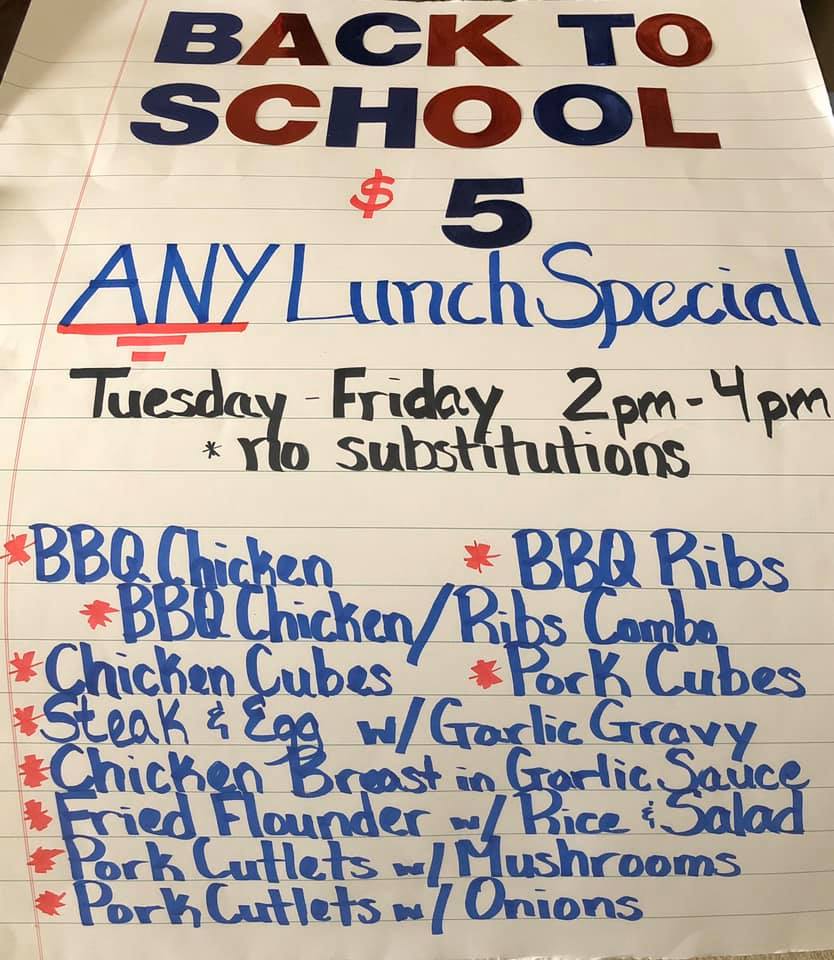 BACK TO
SCHOOL
$ 5
ANY Lunch Special
Tuesday - Friday 2pm - 4pm
* no substitutions
* BBQ Chicken * BBQ Ribs
* BBQ Chicken/Ribs Combo
* Chicken Cubes * Pork Cubes
* Steak & Egg w/ Garlic Gravy
* Chicken Breast in Garlic Sauce
* Fried Flounder w/ Rice & Salad
* Pork Cutlets w/ Mushrooms
* Pork Cutlets w/ Onions